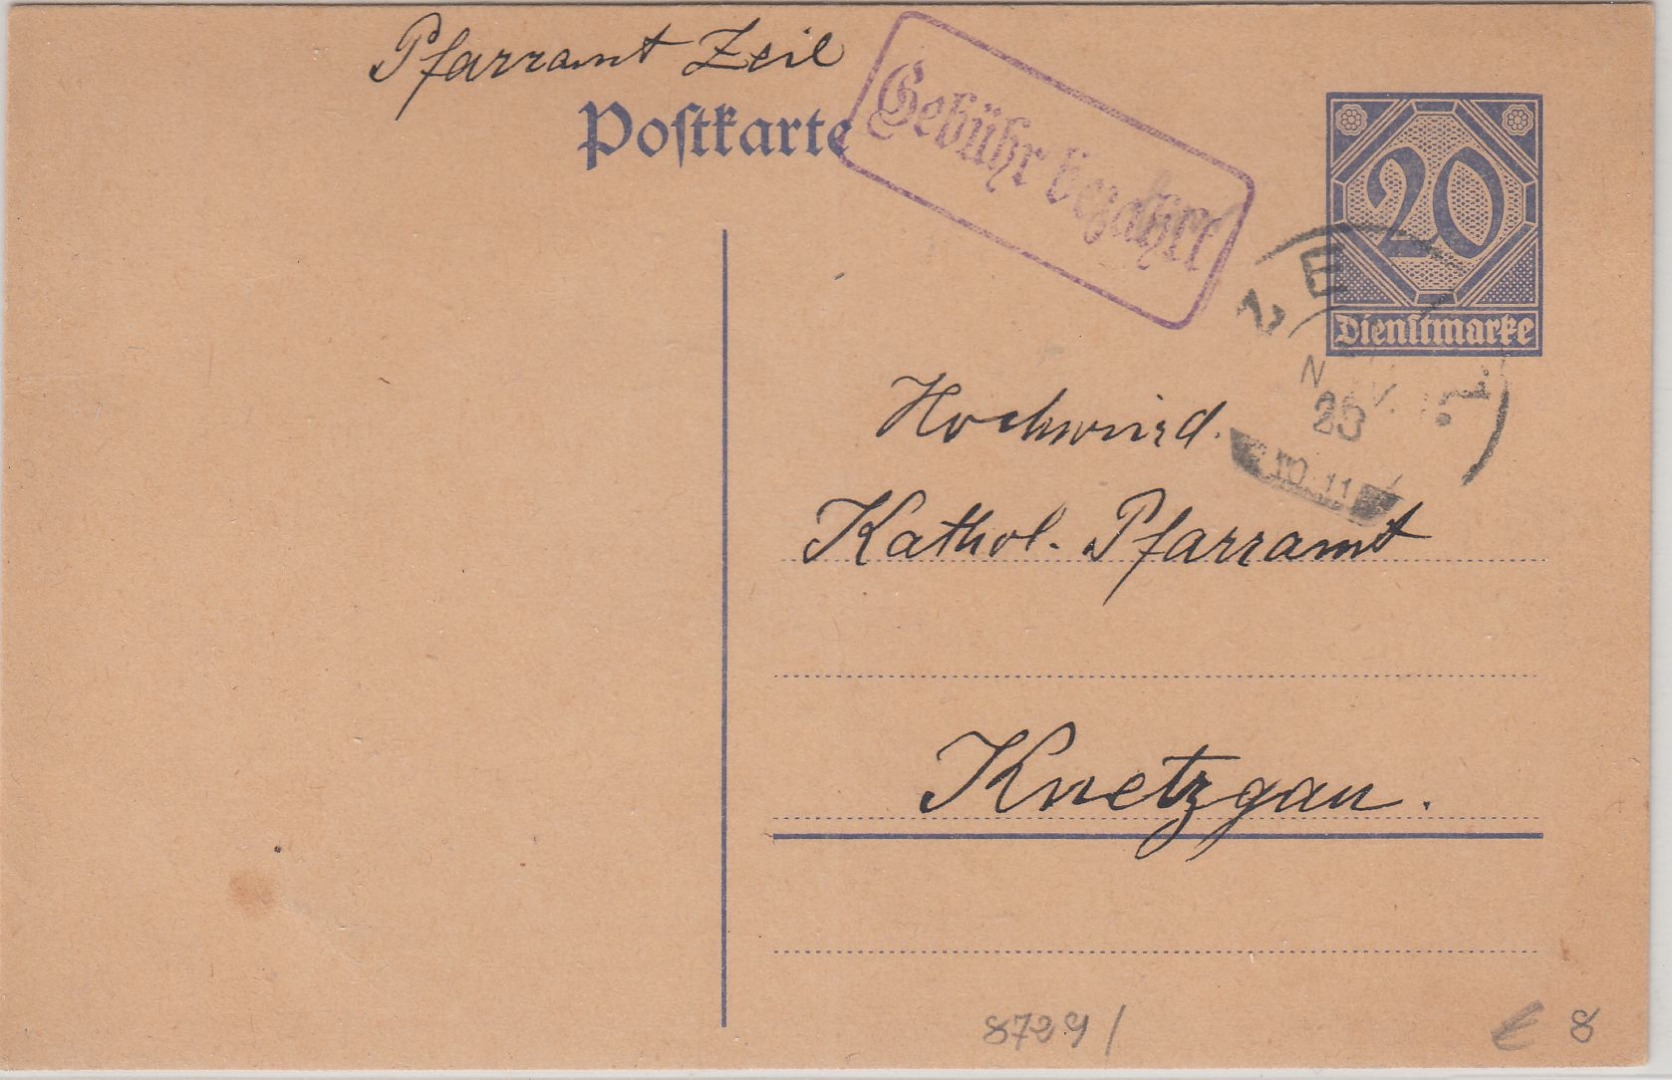 Pfarramt Zeil
Postkarte
Gebühr bezahlt
20
Dienstmarke
Hochwürd.
Kathol. Pfarramt
Knetzgau.
8729/
€ 8